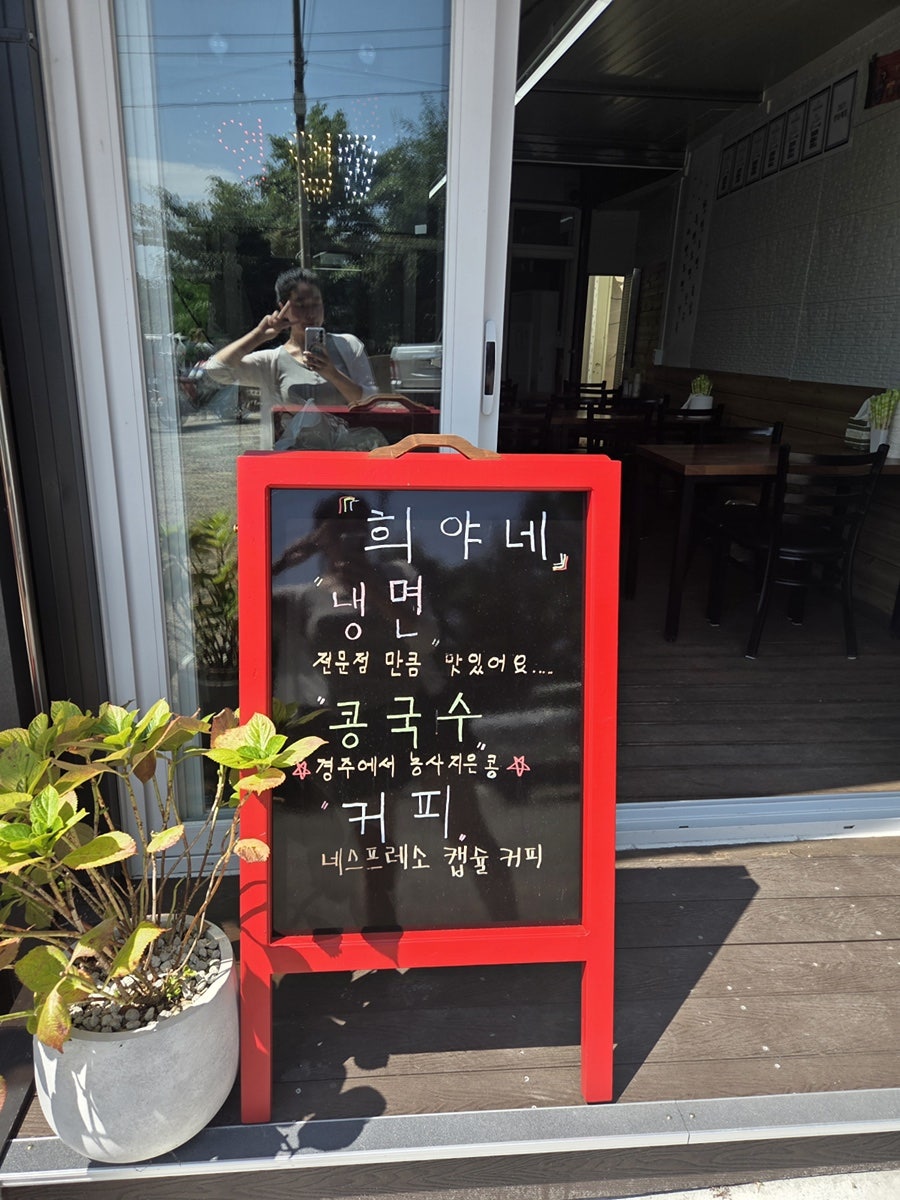 『희야네』
"냉면"
전문점 만큼 맛있어요....
"콩국수"
☆경주에서 농사지은콩☆
"커피"
네스프레소 캡슐 커피